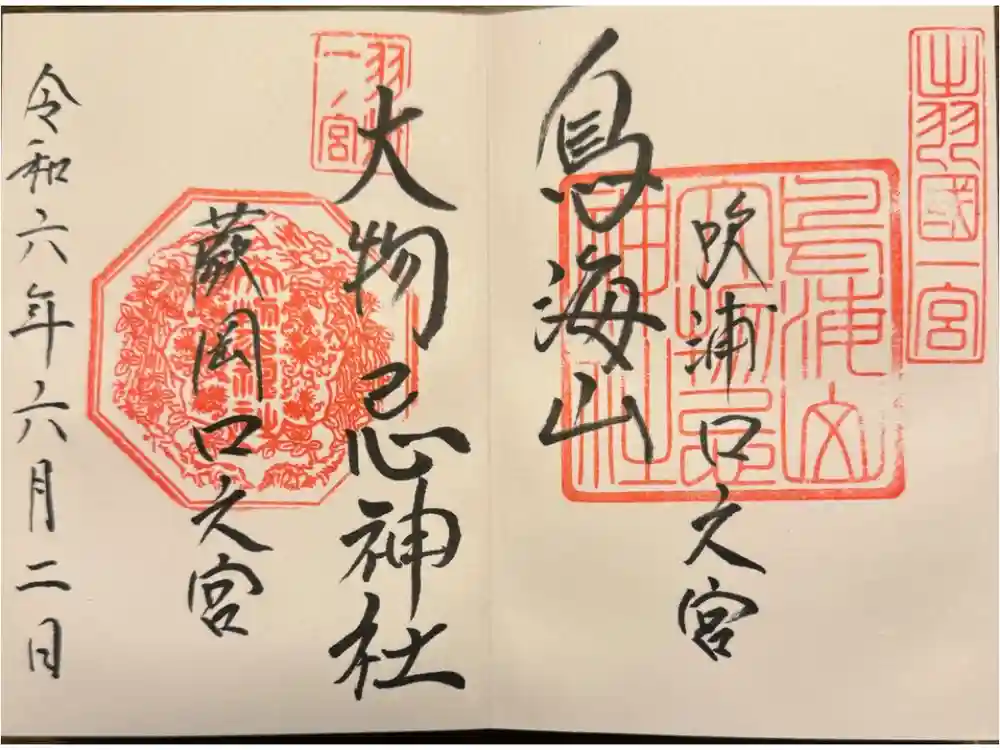 出羽國一宮
鳥海山
吹浦口之宮
鳥海山大物忌神社
羽州一ノ宮
大物忌神社
蕨岡口之宮
令和六年六月二日